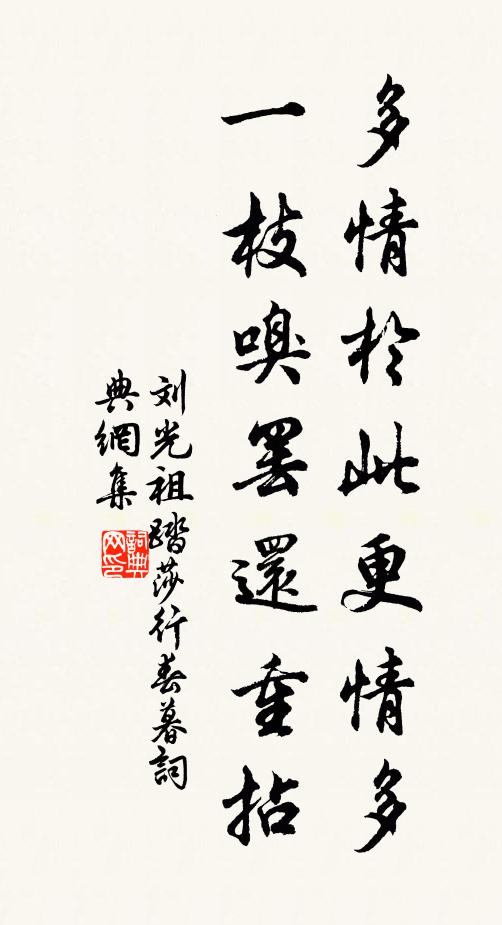 多情於此更情多
一枝嗅罢還重拈
刘光祖踏莎行春暮詞
典網集
詞典网印